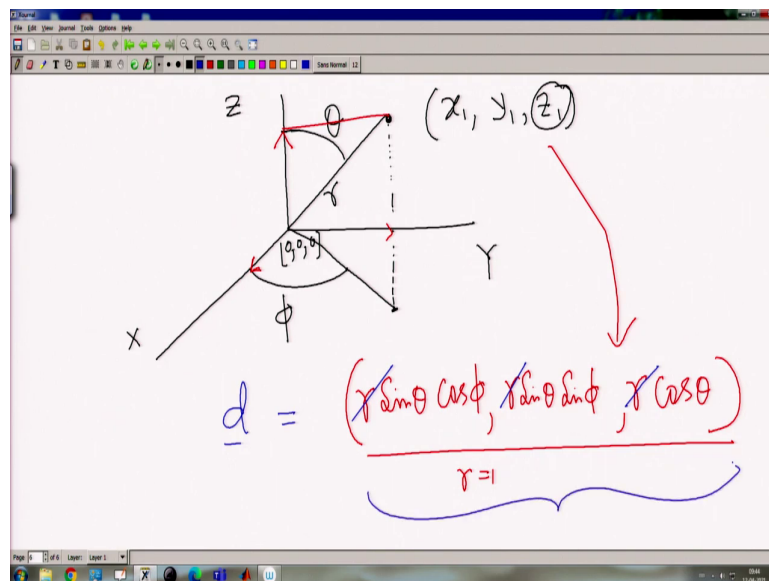 Xournal
File Edit View Journal Tools Options Help
Sans Normal 12
Z
θ
(x₁, y₁, z₁)
r
[0,0,0]
Y
X
ϕ
d = (r sinθ cosϕ, r sinθ sinϕ, r cosθ)
r=1
Page 6 of 6 Layer: Layer 1
09:44